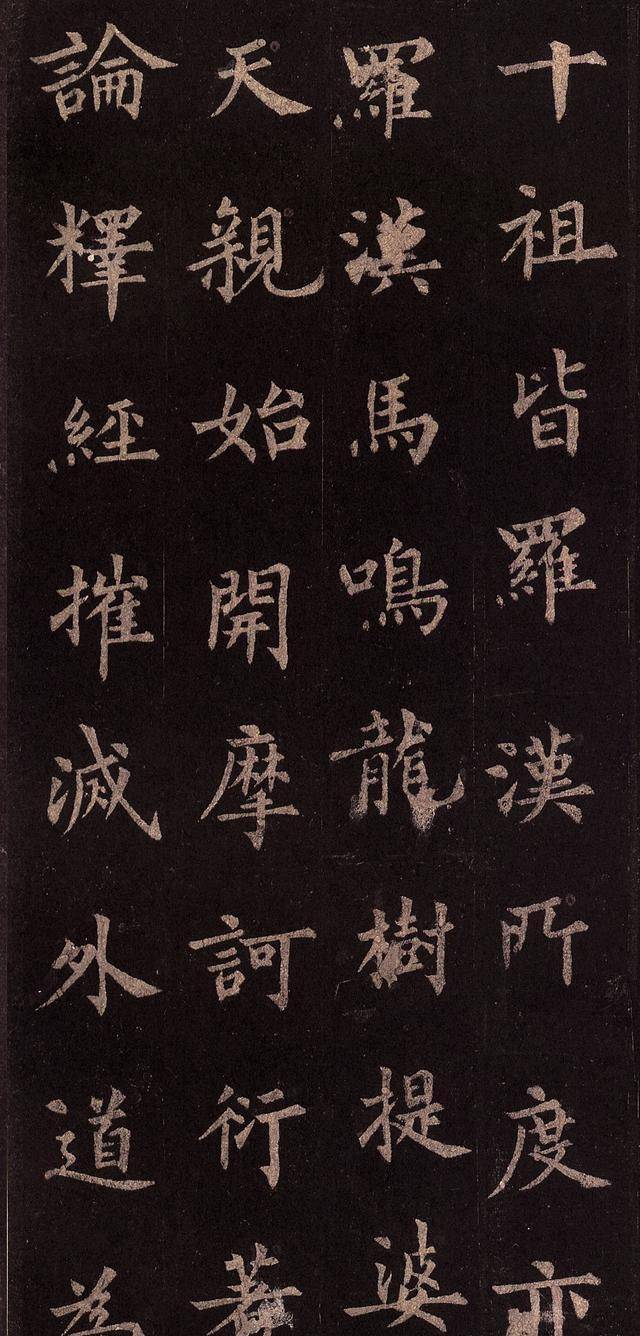 十祖皆羅漢所度亦
羅漢馬鳴龍樹提婆
天親始開摩訶衍著
論釋經摧滅外道為